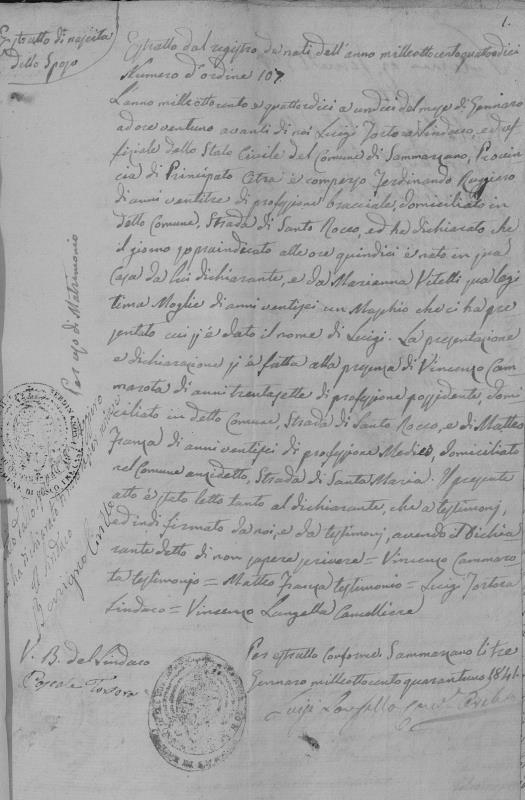 1.
Estratto di nascita
dello Sposo
Estratto dal registro de nati dell'anno milleottocentoquattordici
Numero d'ordine 107
L'anno milleottocento e quattordici a undici del mese di Gennaro
ad ore ventuno avanti di noi Luigi Tortora Sindaco, ed uf-
fiziale dello Stato Civile del Comune di Sammarzano, Provin-
cia di Principato Citra è comparso Ferdinando Ruggiero
di anni ventitre di professione bracciale, domiciliato in
detto Comune, Strada di Santo Rocco, ed ha dichiarato che
il giorno sopraindicato alle ore quindici è nato in sua
Casa da lui dichiarante, e da Marianna Vitelli sua legi
tima Moglie di anni ventisei un Maschio che ci ha pre
sentato cui si è dato il nome di Luigi. La presentazione
e dichiarazione si è fatta alla presenza di Vincenzo Cam
marota di anni trentasette di professione possidente, domi
ciliato in detto Comune, Strada di Santo Rocco, e di Matteo
Franza di anni ventisei di professione Medico, domiciliato
nel Comune anzidetto, Strada di Santa Maria. Il presente
atto è stato letto tanto al dichiarante, che a testimonj,
ed indi firmato da noi, e da testimonj, avendo il Dichia
rante detto di non sapere scrivere = Vincenzo Cammaro-
ta testimonio = Matteo Franza testimonio = Luigi Tortora
Sindaco = Vincenzo Langella Cancelliere
Per estratto conforme. Sammarzano li tre
Gennaro milleottocento quarantuno 1841.
V. B. del Sindaco
Pascale Tortora
Per uso di Matrimonio
Il Sindaco